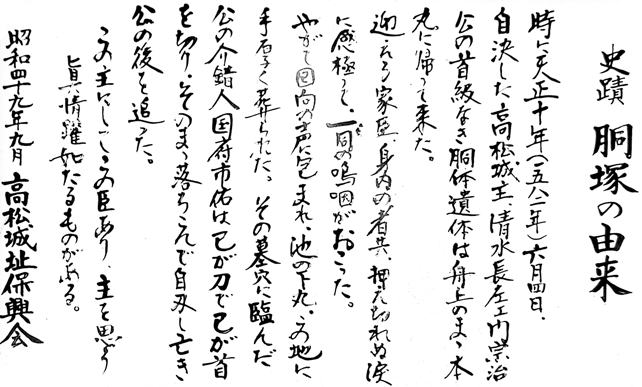 史蹟 胴塚の由来
時に天正十年(一五八二年)六月四日、
自決した高松城主、清水長左エ門宗治
公の首級なき胴体遺体は舟上のまゝ本
丸に帰って来た。
迎える家臣、身内の者共、押え切れぬ涙
に感極って、一同の嗚咽がおこった。
やがて回向の声に包まれ、池の下丸、この地に
手石く葬られた。その墓穴に臨んだ
公の介錯人国府市佑は己が刀で己が首
を切り、そのまゝ落ちこんで自刃し亡き
公の後を追った。
この主にしてこの臣あり、主を思う
真情躍如たるものがある。
昭和四十九年九月 高松城址保興会